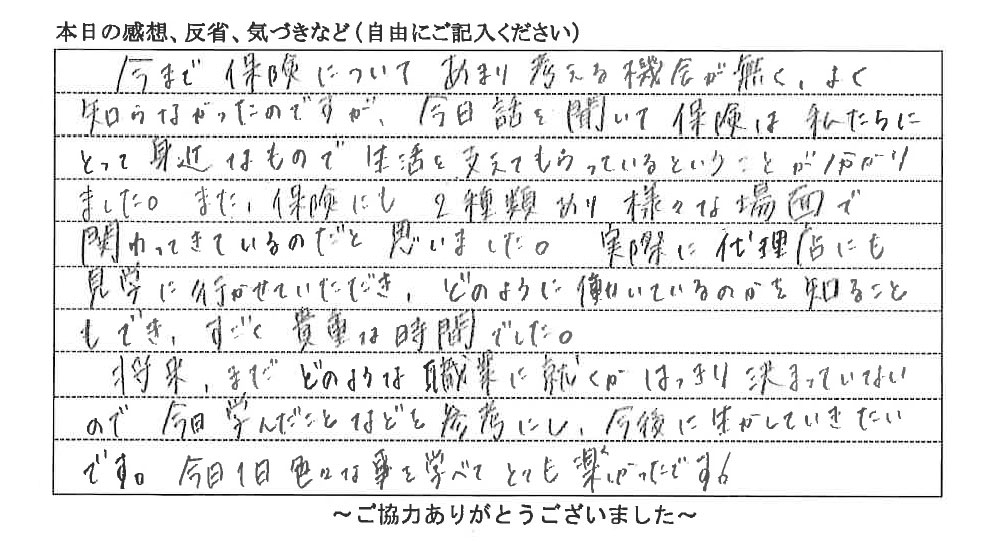 本日の感想、反省、気づきなど（自由にご記入ください）
今まで保険について あまり考える機会が無く、よく
知らなかったのですが、今日話を聞いて保険は私たちに
とって身近なもので生活を支えてもらっているということが分かり
ました。また、保険にも２種類あり様々な場面で
関わってきているのだと思いました。実際に代理店にも
見学に行かせていただき、どのように働いているのかを知ること
もでき、すごく貴重な時間でした。
将来、まだどのような職業に就くかはっきり決まっていない
ので今日学んだことなどを参考にし、今後に生かしていきたい
です。今日１日色々な事を学べてとても楽しかったです！
～ご協力ありがとうございました～